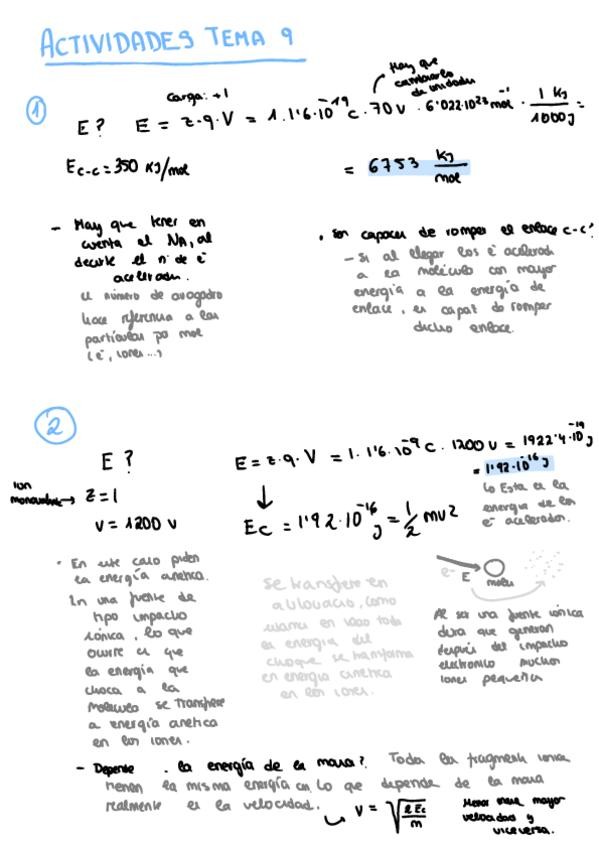 ACTIVIDADES TEMA 9
Hay que cambiarlo de unidades
Carga: +1
1 E? E = z·q·V = 1·1'6·10^-19 c · 70 v · 6'022·10^23 mol^-1 · 1 KJ / 1000 J =
E c-c = 350 KJ/mol
= 6753 KJ/mol
- Hay que tener en
cuenta el NA, al
decirte el nº de e-
acelerados.
El número de avogadro
hace referencia a las
partículas por mol
(e-, iones...)
• Son capaces de romper el enlace c-c?
- Si al llegar los e- acelerad
a la molécula con mayor
energía a la energía de
enlace, es capaz de romper
dicho enlace.
2
E? E = z·q·V = 1·1'6·10^-9 c · 1200 v = 1922'4·10^-19 J
= 1'92·10^-16 J
ion
→ z = 1
V = 1200 v
↓
Ec = 1'92·10^-16 J = 1/2 mv2
↳ Esta es la
energía de los
e- acelerados.
• En este caso piden
la energía cinética.
En una fuente de
tipo impacto
iónica, lo que
ocurre es que
la energía que
choca a la
molécula se transfiere
a energía cinética
en los iones.
se transfiere en
como
en vacío toda
la energía del
choque se transforma
en energía cinética
en los iones.
e- E molec
Al ser una fuente iónica
dura que generan
después del impacto
electronico muchos
iones pequeños
- Depende . la energía de la masa? Todos los fragments ionic
tienen la misma energía con lo que depende de la masa
realmente es la velocidad.
↳ V = √(2Ec/m)
Menor masa mayor
velocidad y
viceversa.